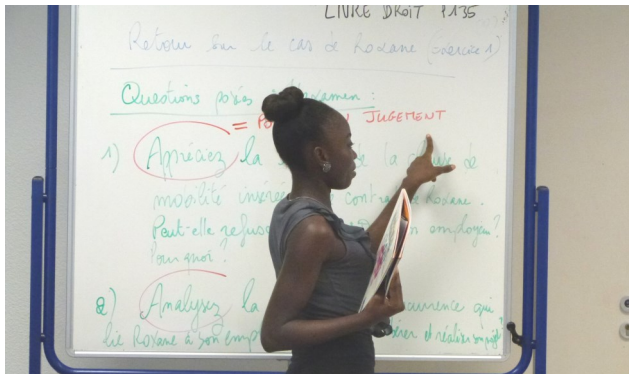 LIVRE DROIT P135
Retour sur le cas de Roxane (exercice 1)
Questions posées examen :
= JUGEMENT
1) Appréciez la la de
mobilité contra Roxane.
Peut-elle refuse employeur?
Pourquoi?
2) Analysez la currence qui
lie Roxane à son emp et réaliser son projet?